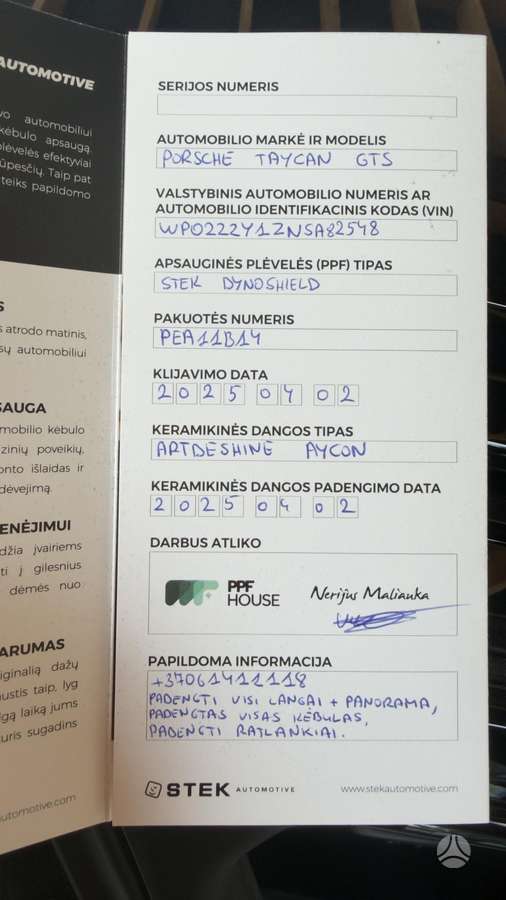 AUTOMOTIVE
vo automobiliui
kėbulo apsaugą.
plėvelės efektyviai
ūpesčių. Taip pat
teiks papildomo
S
s atrodo matinis,
sų automobiliui
SAUGA
mobilio kėbulo
zinių poveikių,
onto išlaidas ir
dėvejimą.
ENĖJIMUI
džia įvairiems
ti į gilesnius
dėmės nuo
ARUMAS
iginalią dažų
ustis taip, lyg
lgą laiką jums
turis sugadins
utomotive.com
SERIJOS NUMERIS
AUTOMOBILIO MARKĖ IR MODELIS
PORSCHE TAYCAN GTS
VALSTYBINIS AUTOMOBILIO NUMERIS AR
AUTOMOBILIO IDENTIFIKACINIS KODAS (VIN)
WP0222Y1ZNSA82548
APSAUGINĖS PLĖVELĖS (PPF) TIPAS
STEK DYNOSHIELD
PAKUOTĖS NUMERIS
PEA11B14
KLIJAVIMO DATA
2025 04 02
KERAMIKINĖS DANGOS TIPAS
ARTDESHINE AYCON
KERAMIKINĖS DANGOS PADENGIMO DATA
2025 04 02
DARBUS ATLIKO
PPF
HOUSE
Nerijus Maliauka
PAPILDOMA INFORMACIJA
+37061411118
PADENGTI VISI LANGAI + PANORAMA,
PADENGTAS VISAS KĖBULAS,
PADENGTI RATLANKIAI.
STEK AUTOMOTIVE
www.stekautomotive.com